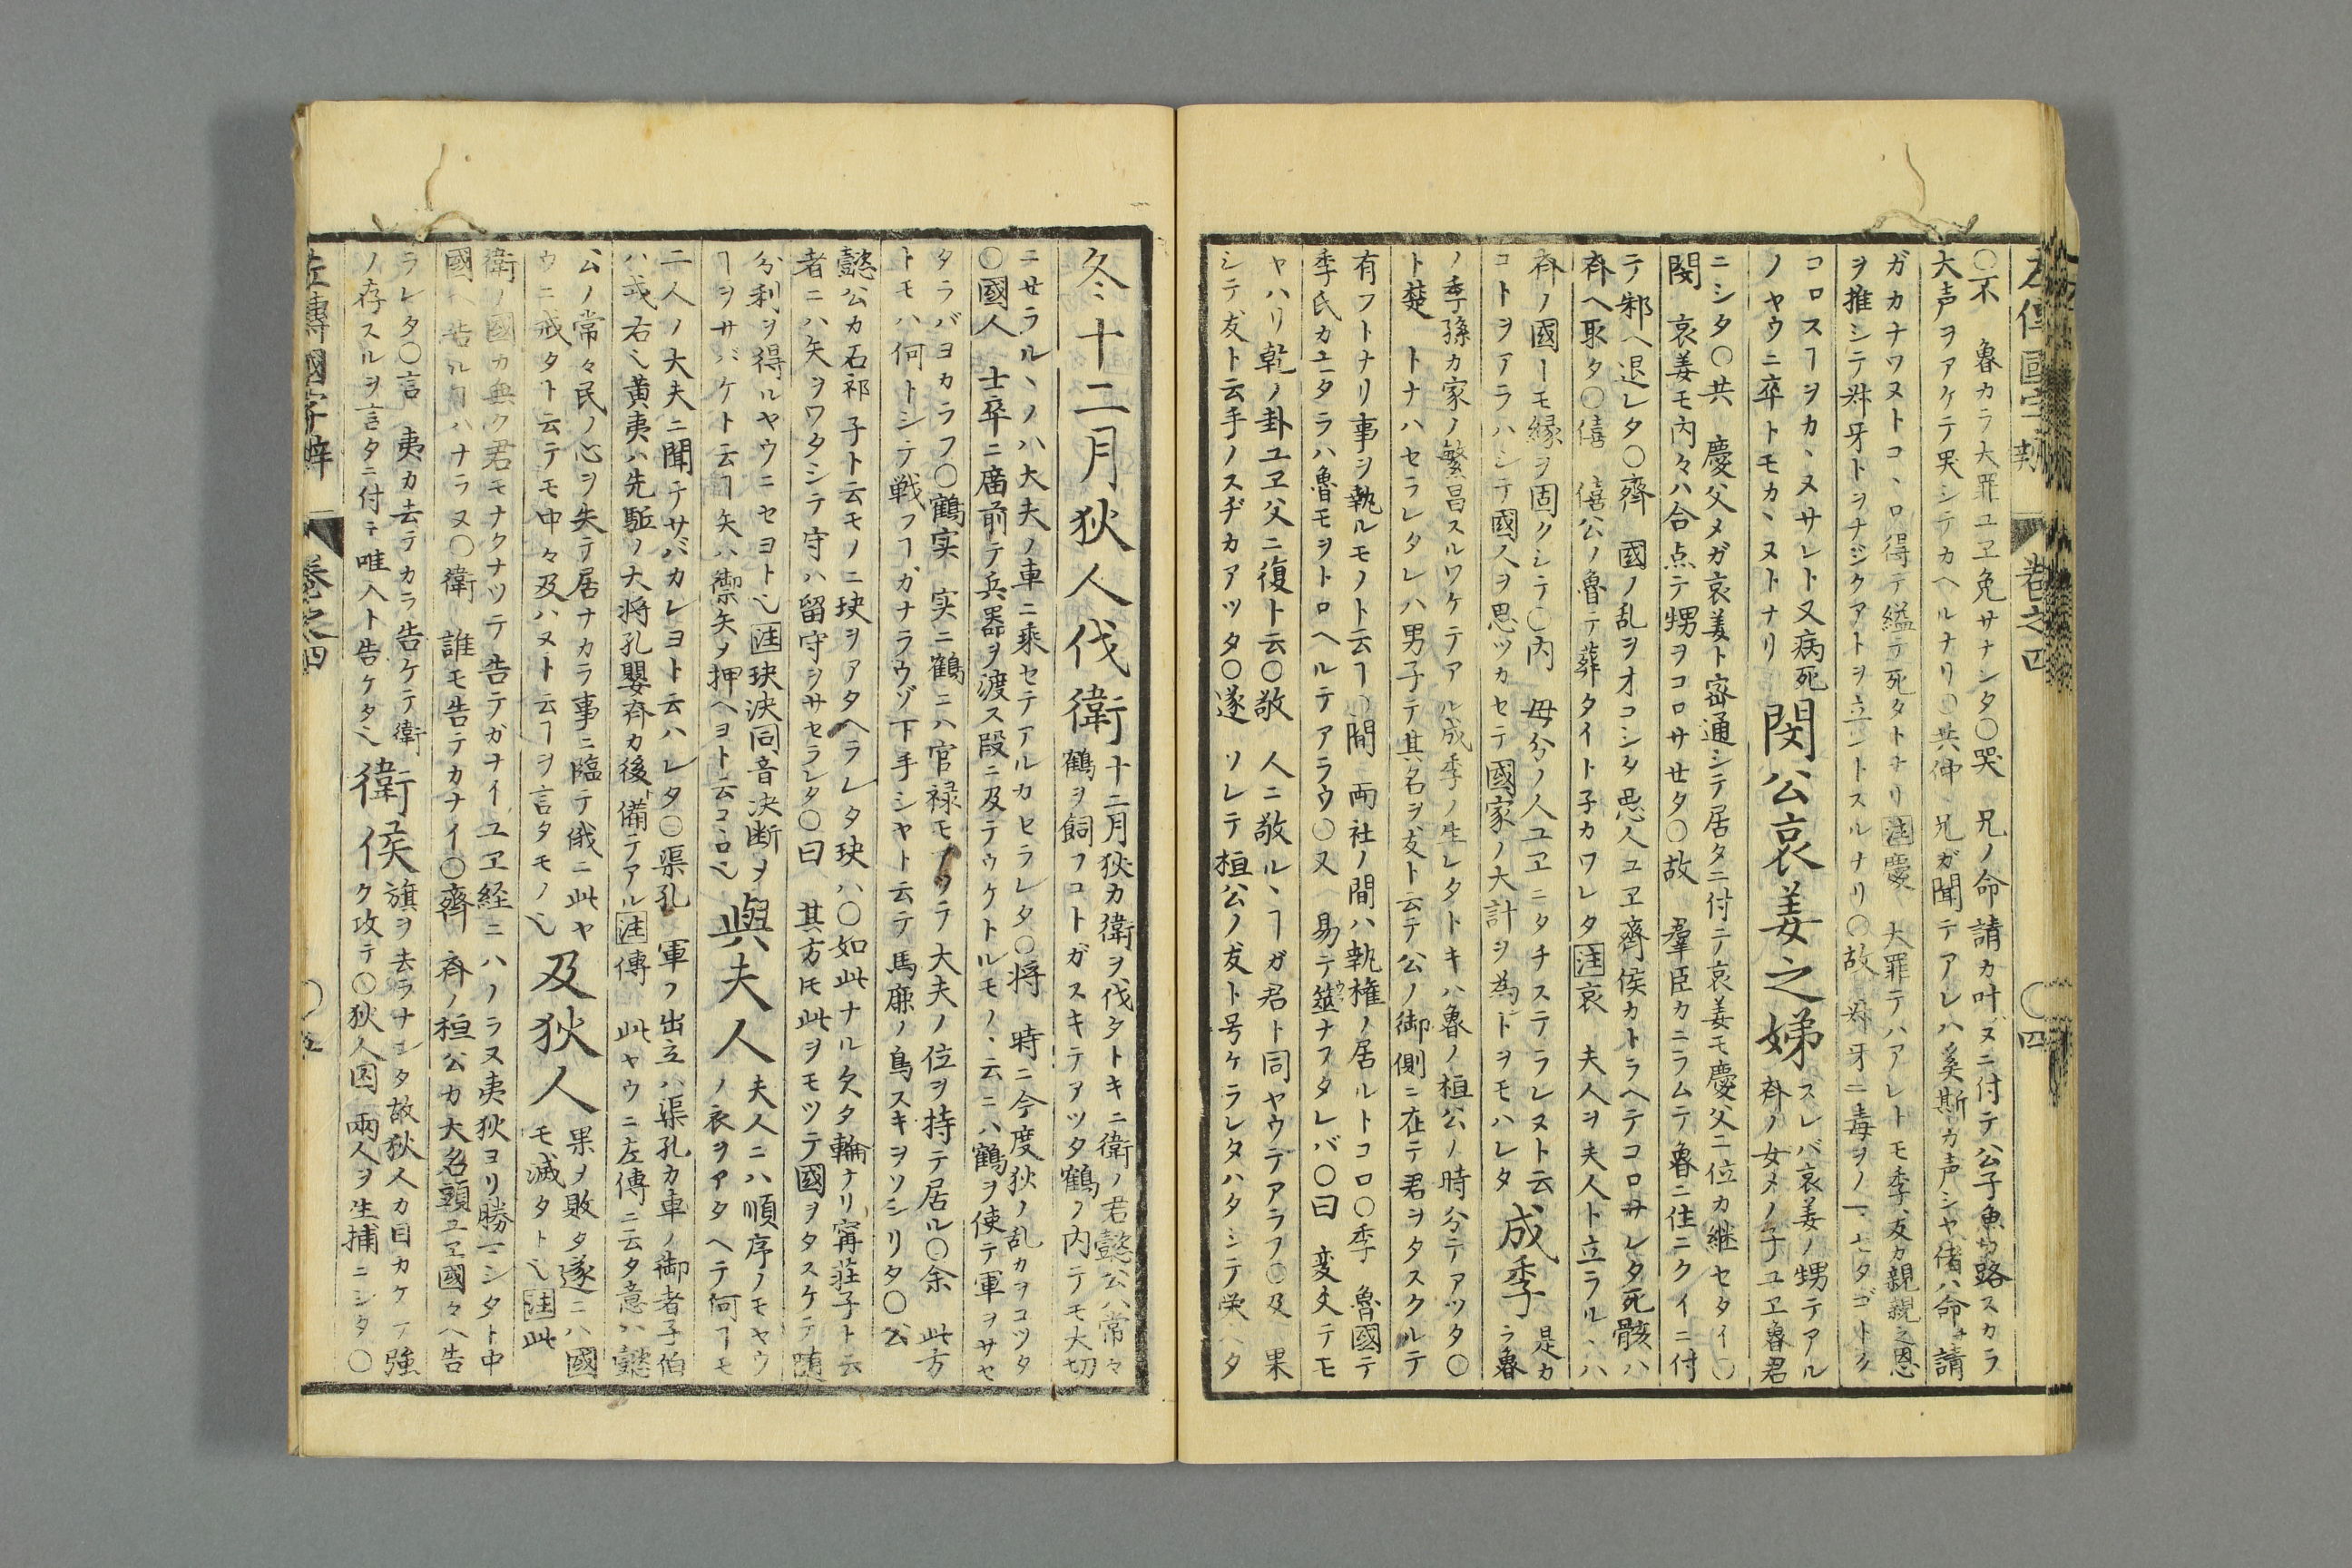 左傳國字辨 卷之四 〇四
〇不 魯カラ大罪ユヱ免サナンタ〇哭 兄ノ命請カ叶ヌニ付テ公子魚カ路スカラ
大声ヲアケテ哭シテカヘルナリ〇共仲 兄ガ聞テアレハ奚斯カ声シヤ偖ハ命ヲ請
ガカナワヌトコヽロ得テ縊テ死タトナリ注慶 大罪テハアレトモ季友カ親親之恩
ヲ推シテ牙トヲナジクアトヲ立ントスルナリ〇故 牙ニ毒ヲノマセタゴトク
コロスヿヲカヽヌサレト又病死
ノヤウニ卒トモカヽヌトナリ
閔公哀姜之娣
スレバ哀姜ノ甥テアル
斉ノ女メノ子ユヱ魯君
ニシタ〇共 慶父メガ哀姜ト密通シテ居タニ付テ哀姜モ慶父ニ位カ継セタイ〇
閔 哀姜モ内々ハ合点テ甥ヲコロサセタ〇故 羣臣カニラムテ魯ニ住ニクイニ付
テ邾ヘ退レタ〇齊 國ノ乱ヲオコシタ悪人ユヱ齊侯カトラヘテコロサレタ死骸ハ
斉ヘ取タ〇僖 僖公ノ魯テ葬タイト子カワレタ注哀 夫人ヲ夫人ト立ラルヽハ
斉ノ國ーモ縁ヲ固クシテ〇内 母分ノ人ユヱニタチステラレヌト云
コトヲアラハシテ國人ヲ思ツカセテ國家ノ大計ヲ為トヲモハレタ
成季
是カ
ラ魯
ノ季孫カ家ノ繁昌スルワケテアル成季ノ生レタトキハ魯ノ桓公ノ時分テアツタ〇
ト楚 トナハセラレタレハ男子テ其名ヲ友ト云テ公ノ御側ニ在テ君ヲタスクルテ
有フトナリ事ヲ執ルモノト云ヿ〇間 両社ノ間ハ執権ノ居ルトコロ〇季 魯國テ
季氏カユタラハ魯モヲトロヘルテアラウ〇又 易テ筮ナフタレバ〇曰 変爻テモ
ヤハリ乾ノ卦ユヱ父ニ復ト云〇敬 人ニ敬ルヽヿガ君ト同ヤウデアラフ〇及 果
シテ友ト云手ノスヂカアツタ〇遂 ソレテ桓公ノ友ト号ケラレタハタシテ栄ヘタ
冬十二月狄人伐衛
十二月狄カ衛ヲ伐タトキニ衛ノ君懿公ハ常々
鶴ヲ飼フコトガスキテアツタ鶴ノ内テモ大切
ニセラルヽノハ大夫ノ車ニ乗セテアルカセラレタ〇将 時ニ今度狄ノ乱カヲコツタ
〇國人 士卒ニ庿前テ兵器ヲ渡ス段ニ及テウケトルモノヽ云ニハ鶴ヲ使テ軍ヲサセ
タラバヨカラフ〇鶴実 実ニ鶴ニハ官禄モアツテ大夫ノ位ヲ持テ居ル〇余 此方
トモハ何トシテ戦フヿガナラウゾ下手シヤト云テ馬廉ノ鳥スキヲソシリタ〇公
懿公カ石祁子ト云モノニ玦ヲアタヘラレタ玦ハ〇如此ナル欠タ輪ナリ寗荘子ト云
者ニハ矢ヲワタシテ守ハ留守ヲサセラレタ〇曰 其方モ此ヲモツテ國ヲタスケテ随
分利ヲ得ルヤウニセヨト也注玦決同音决断ヲ
ヿヲサバケト云ヿ矢ハ禦矢ヲ押ヘヨト云コヽロ也
與夫人
夫人ニハ順序ノモヤウ
ノ衣ヲアタヘテ何ヿモ
二人ノ大夫ニ聞テサバカレヨト云ハレタ〇渠孔 軍フ出立ハ渠孔カ車ノ御者子伯
ハ戎右也黄夷ハ先駈ノ大将孔嬰斉カ後備テアル注傳 此ヤウニ左傳ニ云タ意ハ懿
公ノ常々民ノ心ヲ失テ居ナカラ事ニ臨テ俄ニ此ヤ
ウニ戒タト云テモ中々及ハヌト云ヿヲ言タモノ也
及狄人
果ヲ敗タ遂ニハ國
モ滅タト也注此
衛ノ國カ無ク君モナクナツテ告テガナイユヱ経ニハノラヌ夷狄ヨリ勝マシタト中
國ヘ告ルヿハナラヌ〇衛 誰モ告テカナイ〇齊 斉ノ桓公カ大名頭ユヱ國々ヘ告
ラレタ〇言 夷カ去テカラ告ケテ衛
ノ存スルヲ言タニ付テ唯入ト告ケタ也
衛侯
旗ヲ去ラナンタ故狄人カ目カケテ強
ク攻テ〇狄人囚 兩人ヲ生捕ニシタ〇
左傳國字辨 卷之四 〇五